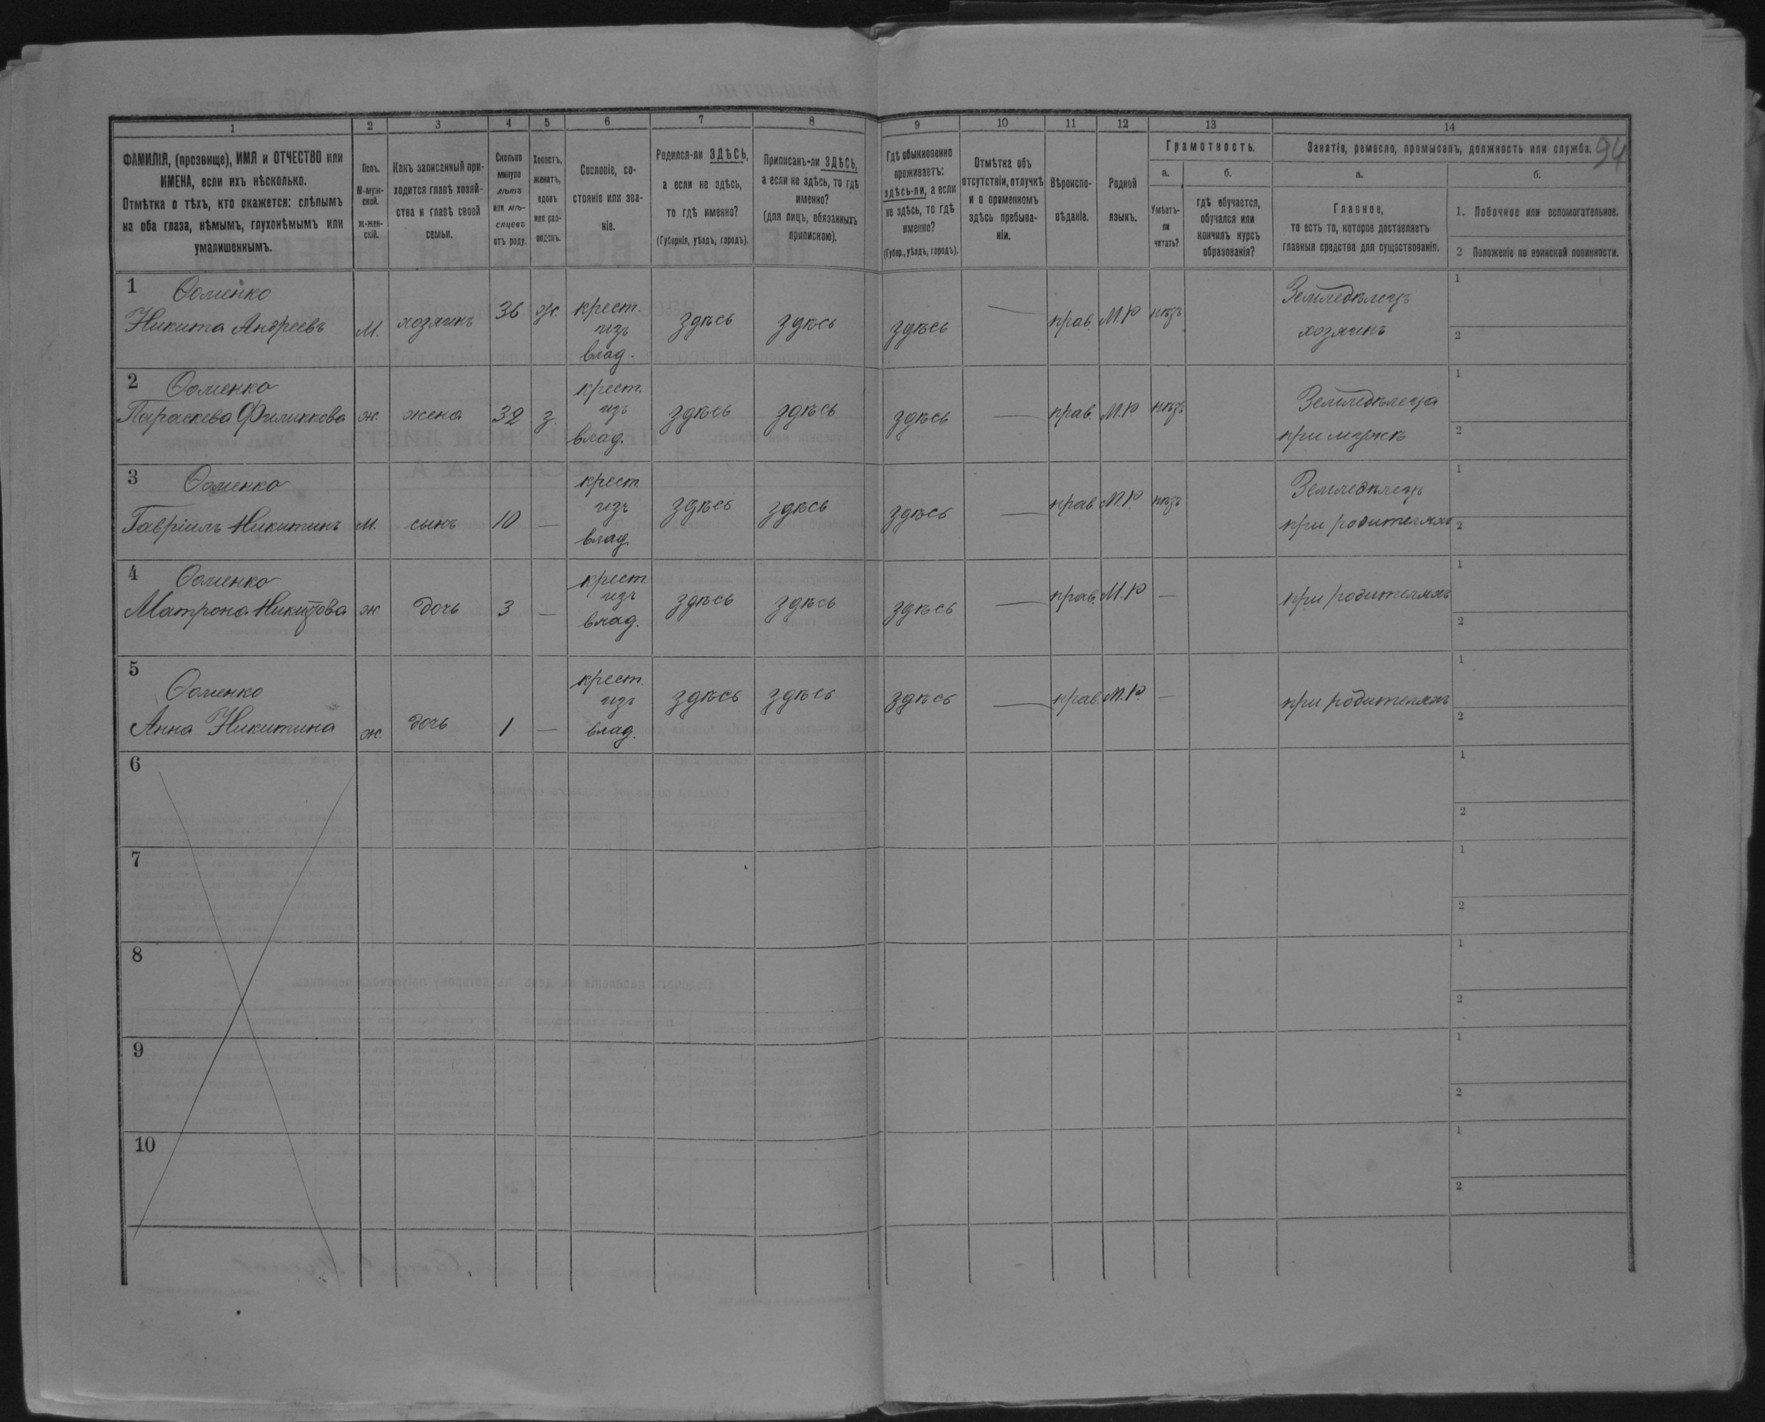 94
1 2 3 4 5 6 7 8 9 10 11 12 13 14
ФАМИЛІЯ, (прозвище), ИМЯ и ОТЧЕСТВО или
ИМЕНА, если ихъ нѣсколько.
Отмѣтка о тѣхъ, кто окажется: слѣпымъ
на оба глаза, нѣмымъ, глухонѣмымъ или
умалишеннымъ.
Полъ.
М-муж-
ской.
Ж-жен-
скій.
Какъ записанный при-
ходится главѣ хозяй-
ства и главѣ своей
семьи.
Сколько
минуло
лѣтъ
или мѣ-
сяцевъ
отъ роду.
Холостъ,
женатъ,
вдовъ
или раз-
веденъ.
Сословіе, со-
стояніе или зва-
ніе.
Родился-ли ЗДѢСЬ,
а если не здѣсь,
то гдѣ именно?
(Губернія, уѣздъ, городъ).
Приписанъ-ли ЗДѢСЬ,
а если не здѣсь, то гдѣ
именно?
(для лицъ, обязанныхъ
припискою).
Гдѣ обыкновенно
проживаетъ:
здѣсь-ли, а если
не здѣсь, то гдѣ
именно?
(Губер., уѣздъ, городъ).
Отмѣтка объ
отсутствіи, отлучкѣ
и о временномъ
здѣсь пребыва-
ніи.
Вѣроиспо-
вѣданіе.
Родной
языкъ.
Грамотность.
а.
Умѣетъ-
ли
читать?
б.
гдѣ обучается,
обучался или
кончилъ курсъ
образованія?
Занятіе, ремесло, промыселъ, должность или служба.
а.
Главное,
то есть то, которое доставляетъ
главныя средства для существованія.
б.
1. Побочное или вспомогательное.
2 Положеніе по воинской повинности.
1 Фоменко
Никита Андреевъ
М.
хозяинъ
36
ж.
крест.
изъ
влад.
здѣсь
здѣсь
здѣсь
—
прав.
М.Р
нѣтъ
Земледѣлецъ
хозяинъ
1
2
2 Фоменко
Параскева
ж.
жена
32
з.
крест.
изъ
влад.
здѣсь
здѣсь
здѣсь
—
прав
М.Р
нѣтъ
Земледѣлица
при мужѣ
1
2
3 Фоменко
Гавріилъ Никитинъ
м.
сынъ
10
—
крест
изъ
влад
здѣсь
здѣсь
здѣсь
—
прав.
М.Р.
нѣтъ
Земледѣлецъ
при родителяхъ
1
2
4 Фоменко
Матрона Никитова
ж.
дочь
3
—
крест
изъ
влад.
здѣсь
здѣсь
здѣсь
—
прав.
М.Р
—
при родителяхъ
1
2
5
Фоменко
Анна Никитина
ж.
дочь
1
—
крест.
изъ
влад.
здѣсь
здѣсь
здѣсь
—
прав.
М.Р.
—
при родителяхъ
1
2
6
1
2
7
1
2
8
1
2
9
1
2
10
1
2